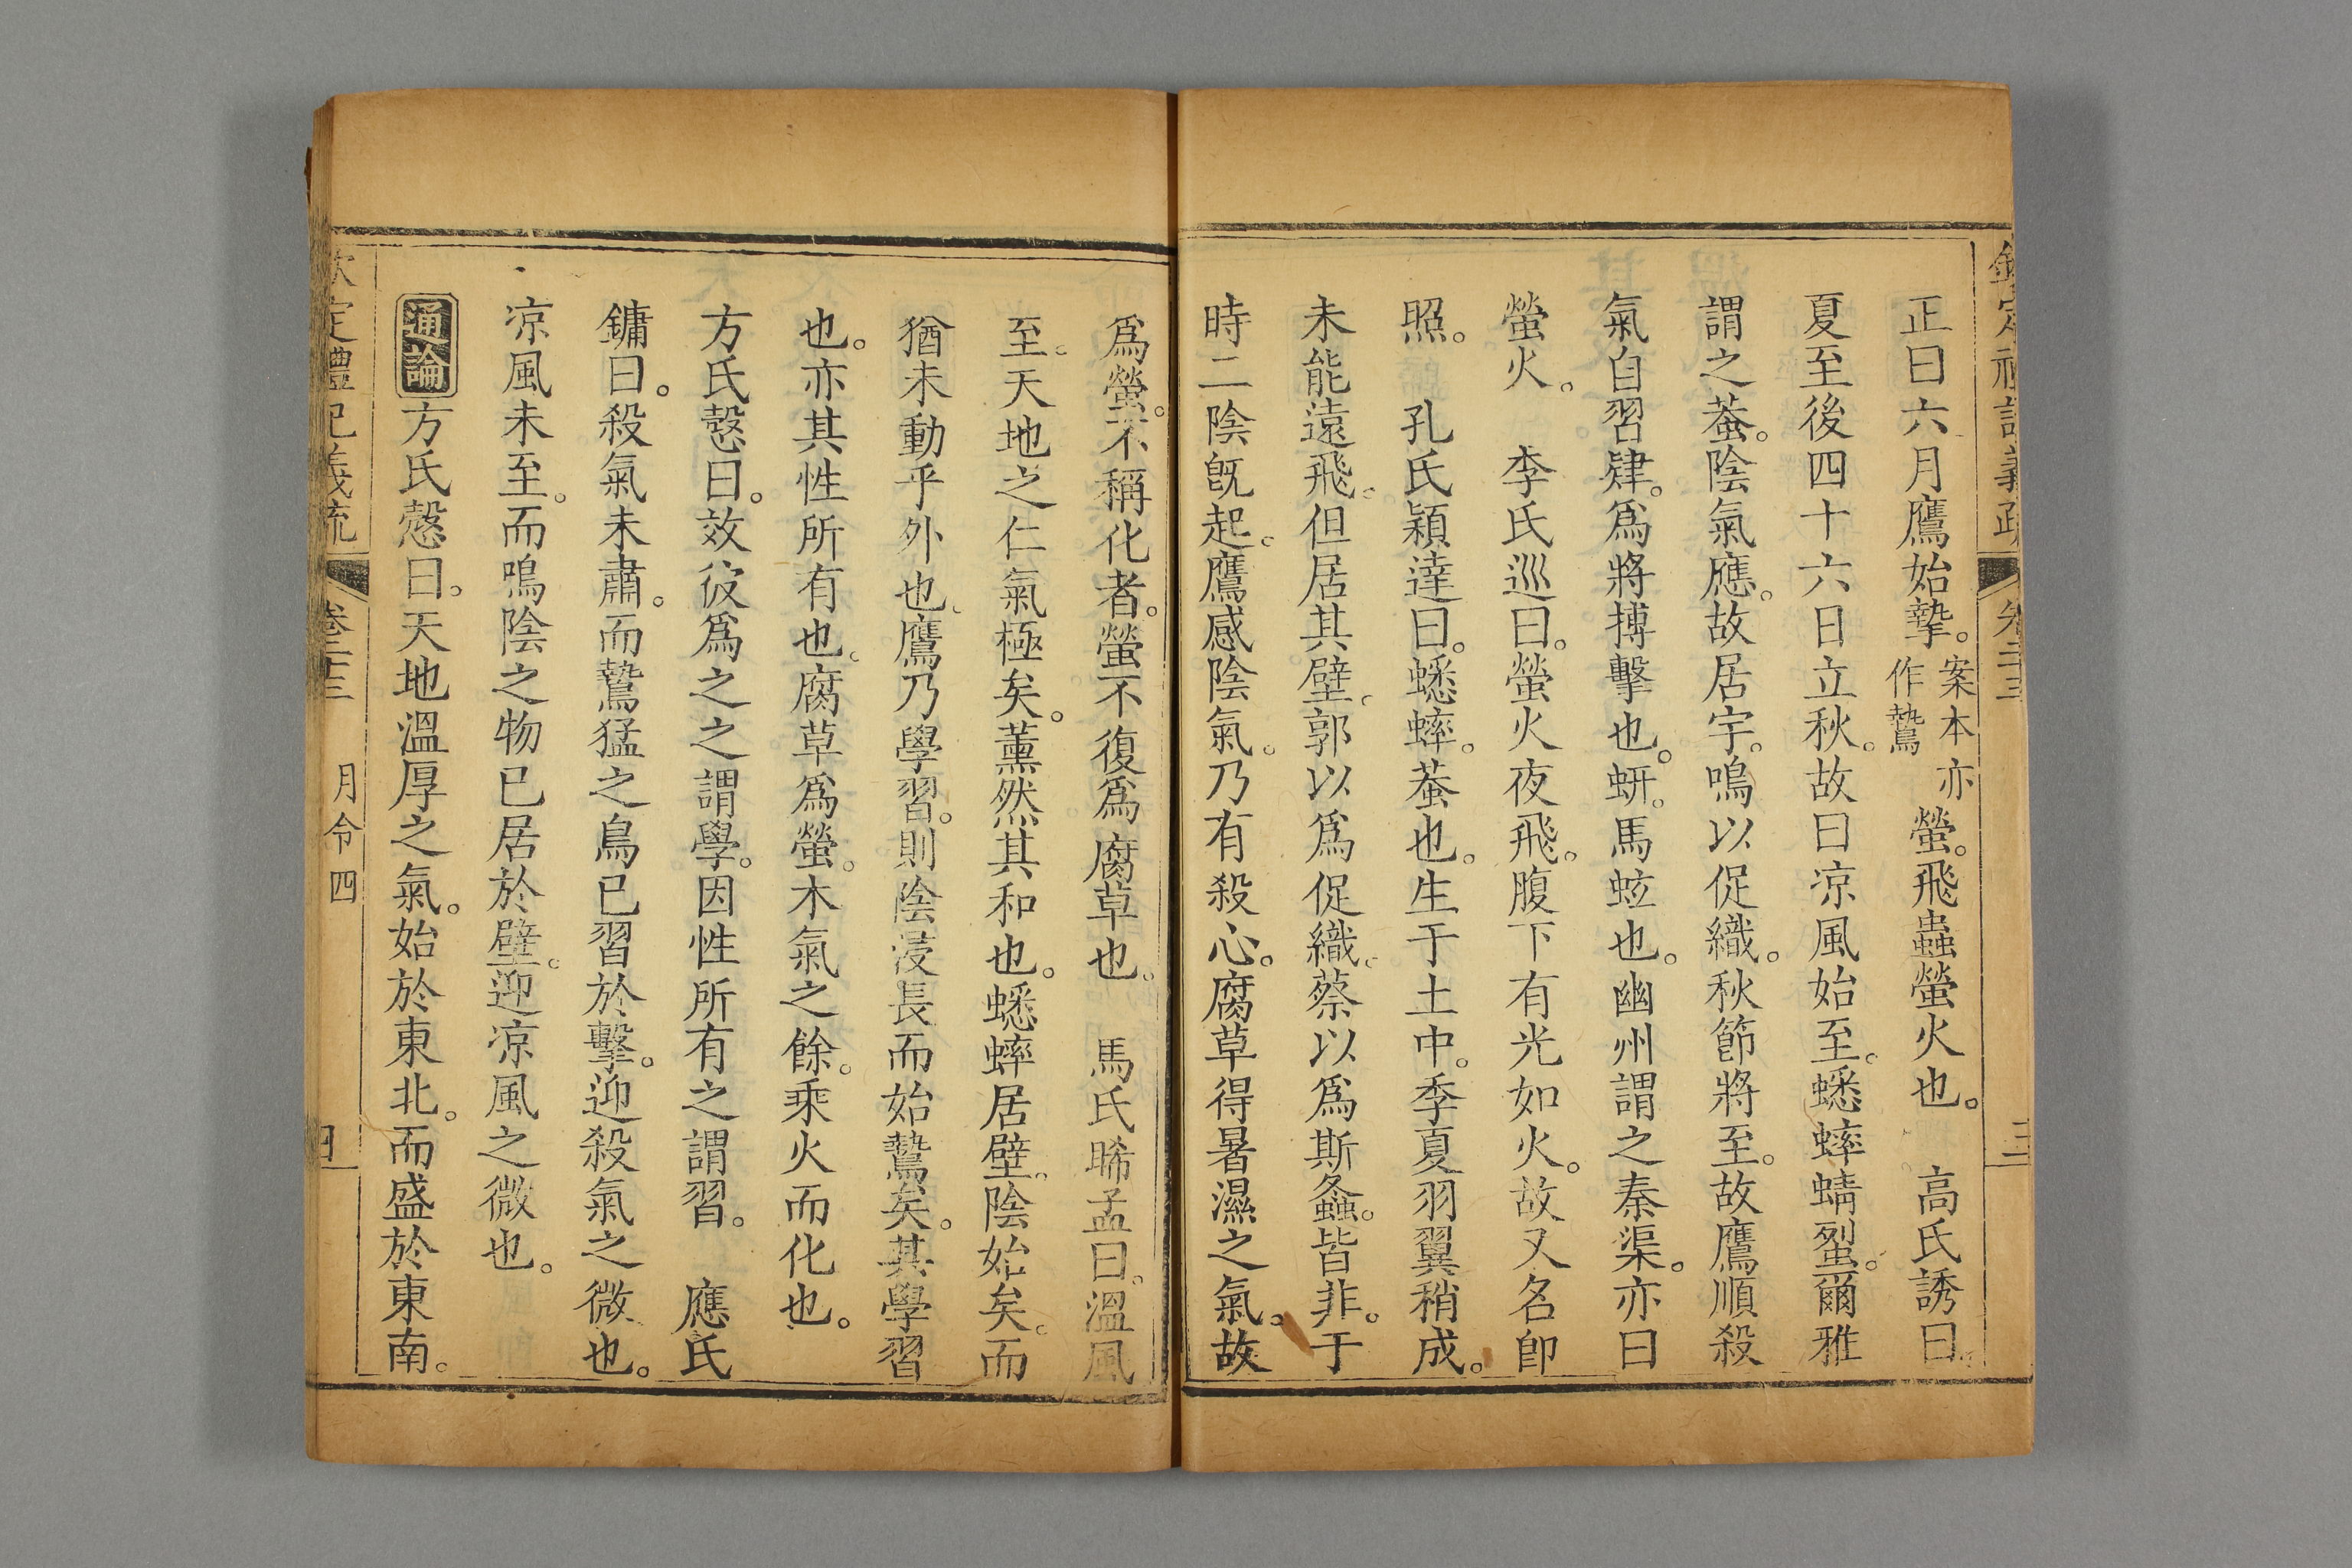 正曰六月鷹始摯。案本亦作鷙螢。飛蟲螢火也。　高氏誘曰。
夏至後四十六日立秋。故曰凉風始至。蟋蟀蜻蛚。爾雅
謂之蛬。陰氣應。故居宇。鳴以促織。秋節將至。故鷹順殺
氣自習肄。爲將搏擊也。蚈。馬蚿也。幽州謂之秦渠。亦曰
螢火。　李氏巡曰。螢火夜飛。腹下有光如火。故又名卽
照。　孔氏穎達曰。蟋蟀。蛬也。生于土中。季夏羽翼稍成。
未能遠飛。但居其壁。郭以爲促織。蔡以爲斯螽。皆非。于
時二陰旣起。鷹感陰氣。乃有殺心。腐草得暑濕之氣。故
爲螢。不稱化者。螢不復爲腐草也。　馬氏晞孟曰。溫風
至。天地之仁氣極矣。薰然其和也。蟋蟀居壁。陰始矣。而
猶未動乎外也。鷹乃學習。則陰浸長而始鷙矣。其學習
也。亦其性所有也。腐草爲螢。木氣之餘。乘火而化也。
方氏愨曰。效彼爲之之謂學。因性所有之謂習。　應氏
鏞曰。殺氣未肅。而鷙猛之鳥已習於擊。迎殺氣之微也。
凉風未至。而鳴陰之物已居於壁。迎凉風之微也。
通論方氏愨曰。天地溫厚之氣。始於東北。而盛於東南。
欽定禮記義疏　卷二十三　月令四　四